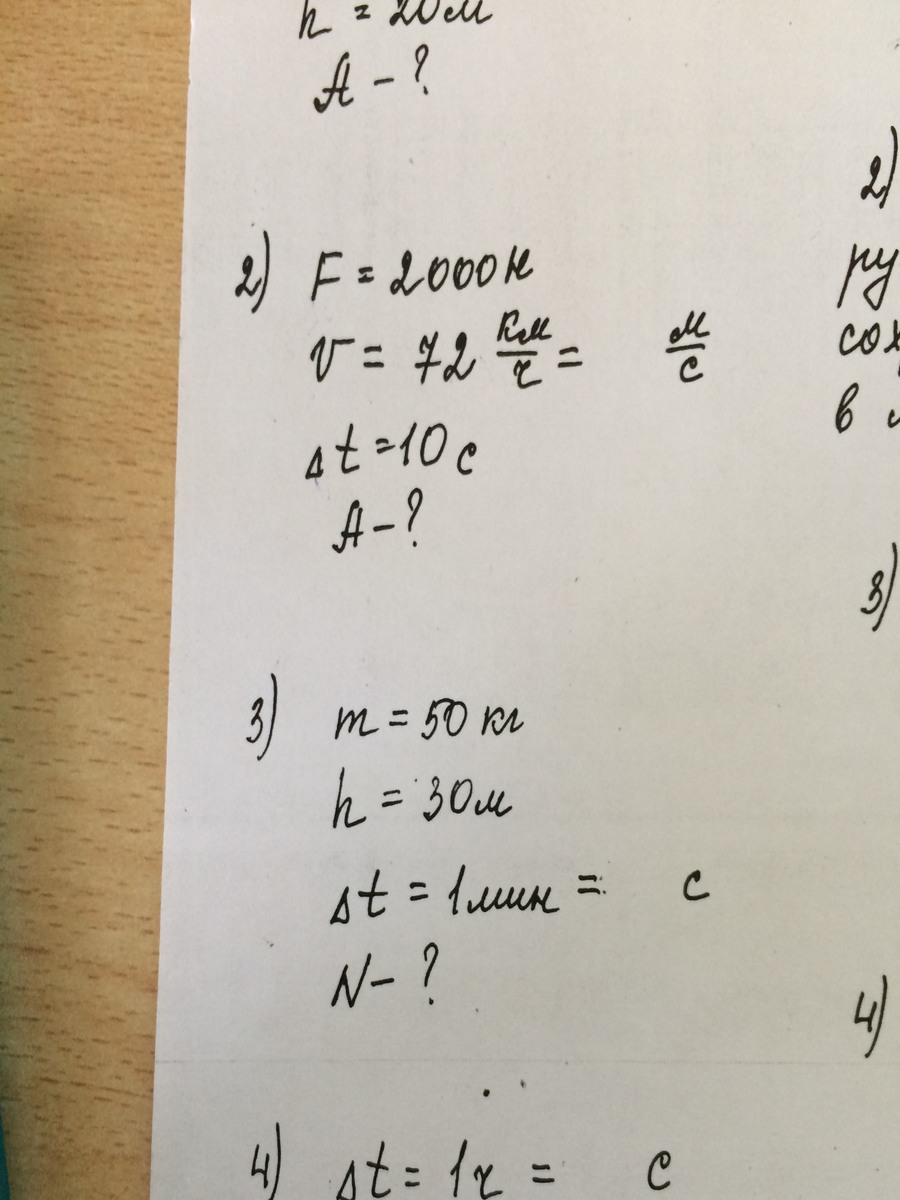 h = 20м
A - ?
2) F = 2000н
v = 72 км/ч = м/с
Δt = 10 с
A - ?
3) m = 50 кг
h = 30м
Δt = 1мин = с
N - ?
4) Δt = 1ч = с
2)
ру
сох
в
3)
4)